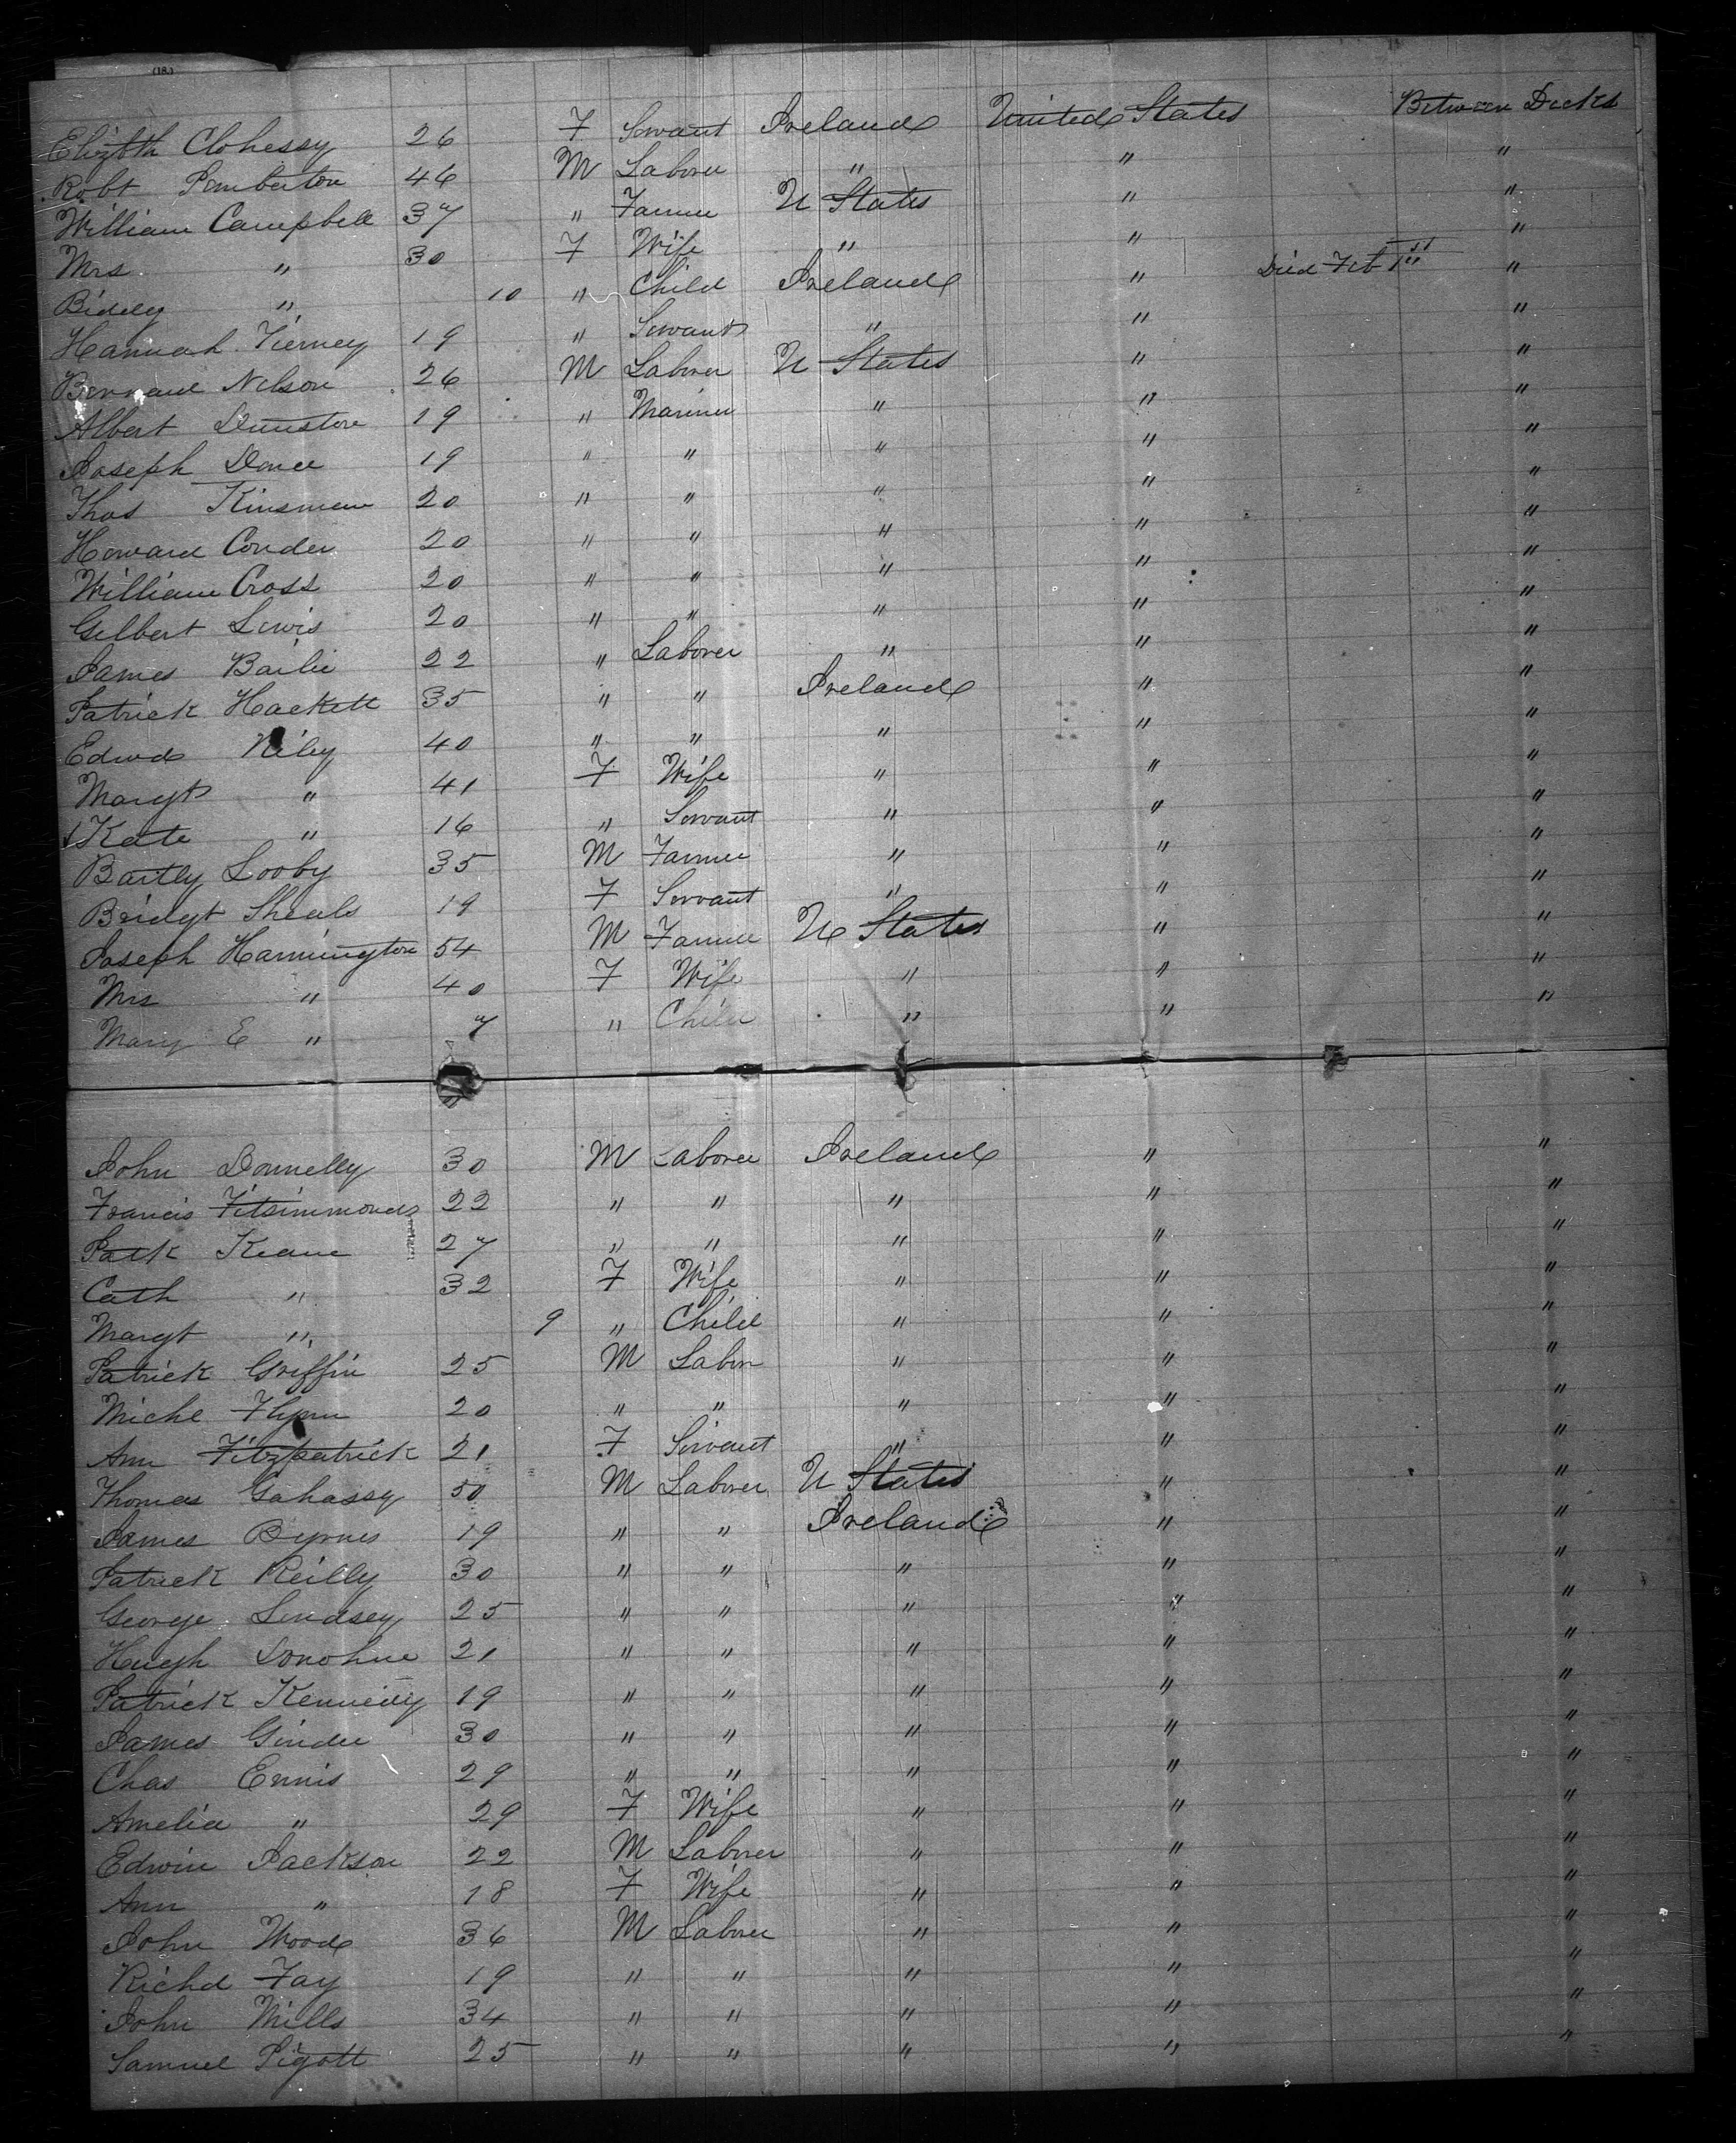 (18.)
Elizbth Clohessy 26 F Servant Ireland United States Between Decks
Robt Pemberton 46 M Laborer " " "
William Campbell 37 " Farmer U States " "
Mrs " 30 F Wife " " "
Biddy " 10 " Child Ireland " Died Feb 1st "
Hannah Tierney 19 " Servant " " "
Bernard Nelson 26 M Laborer U States " "
Albert Dunstone 19 " Mariner " " "
Joseph Dance 19 " " " " "
Thos Kinsman 20 " " " " "
Howard Conder 20 " " " " "
William Cross 20 " " " " "
Gilbert Lewis 20 " " " " "
James Bailie 22 " Laborer " " "
Patrick Hackett 35 " " Ireland " "
Edwd Riley 40 " " " " "
Margt " 41 F Wife " " "
Kate " 16 " Servant " " "
Bartly Looby 35 M Farmer " " "
Bridgt Sheals 19 F Servant " " "
Joseph Hannington 54 M Farmer U States " "
Mrs " 40 F Wife " " "
Mary E " 7 " Child " " "
John Donnelly 30 M Laborer Ireland " "
Francis Fitsimmonds 22 " " " " "
Patk Keane 27 " " " " "
Cath " 32 F Wife " " "
Margt " 9 " Child " " "
Patrick Griffin 25 M Labor " " "
Michl Flynn 20 " " " " "
Ann Fitzpatrick 21 F Servant " " "
Thomas Gahassy 50 M Laborer U States " "
James Byrnes 19 " " Ireland " "
Patrick Reilly 30 " " " " "
George Lindsey 25 " " " " "
Hugh Donohue 21 " " " " "
Patrick Kennedy 19 " " " " "
James Ginder 30 " " " " "
Chas Ennis 29 " " " " "
Amelia " 29 F Wife " " "
Edwin Jackson 22 M Laborer " " "
Ann " 18 F Wife " " "
John Wood 36 M Laborer " " "
Richd Fay 19 " " " " "
John Mills 34 " " " " "
Samuel Pigott 25 " " " " "